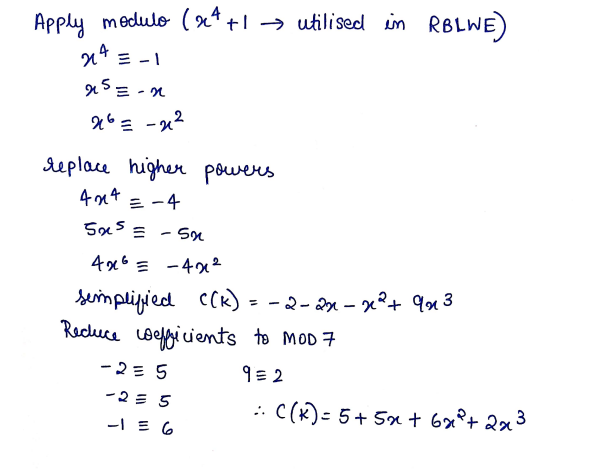 Apply modulo (x⁴+1 → utilised in RBLWE)
x⁴ ≡ -1
x⁵ ≡ -x
x⁶ ≡ -x²
replace higher powers
4x⁴ ≡ -4
5x⁵ ≡ -5x
4x⁶ ≡ -4x²
simplified C(K) = -2-2x-x²+9x³
Reduce coefficients to MOD 7
-2 ≡ 5 9 ≡ 2
-2 ≡ 5
-1 ≡ 6 ∴ C(K) = 5+5x+6x²+2x³